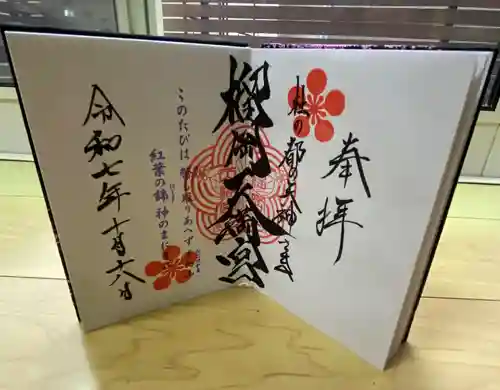 奉拝
杜の都の天神さま
榴岡天満宮
このたびは幣も取りあへず
紅葉の錦神のまにまに
令和七年十月十八日